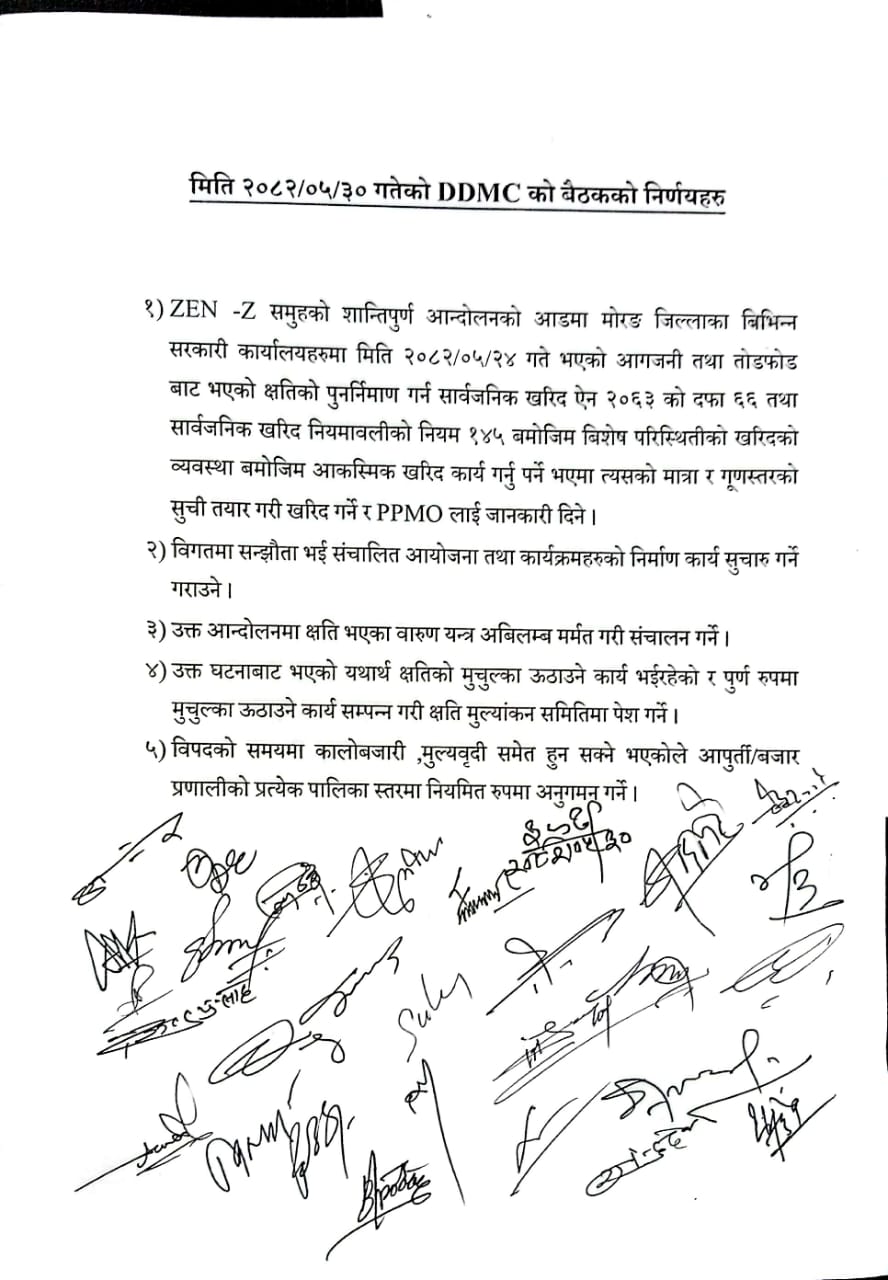 मिति २०८२/०५/३० गतेको DDMC को बैठकको निर्णयहरु
१) ZEN -Z समुहको शान्तिपुर्ण आन्दोलनको आडमा मोरङ जिल्लाका बिभिन्न
सरकारी कार्यालयहरुमा मिति २०८२/०५/२४ गते भएको आगजनी तथा तोडफोड
बाट भएको क्षतिको पुनर्निमाण गर्न सार्वजनिक खरिद ऐन २०६३ को दफा ६६ तथा
सार्वजनिक खरिद नियमावलीको नियम १४५ बमोजिम बिशेष परिस्थितीको खरिदको
व्यवस्था बमोजिम आकस्मिक खरिद कार्य गर्नु पर्ने भएमा त्यसको मात्रा र गूणस्तरको
सुची तयार गरी खरिद गर्ने र PPMO लाई जानकारी दिने ।
२) विगतमा सन्झौता भई संचालित आयोजना तथा कार्यक्रमहरुको निर्माण कार्य सुचारु गर्ने
गराउने ।
३) उक्त आन्दोलनमा क्षति भएका वारुण यन्त्र अबिलम्ब मर्मत गरी संचालन गर्ने ।
४) उक्त घटनाबाट भएको यथार्थ क्षतिको मुचुल्का ऊठाउने कार्य भईरहेको र पुर्ण रुपमा
मुचुल्का ऊठाउने कार्य सम्पन्न गरी क्षति मुल्यांकन समितिमा पेश गर्ने ।
५) विपदको समयमा कालोबजारी ,मुल्यवृदी समेत हुन सक्ने भएकोले आपुर्ती/बजार
प्रणालीको प्रत्येक पालिका स्तरमा नियमित रुपमा अनुगमन गर्ने ।